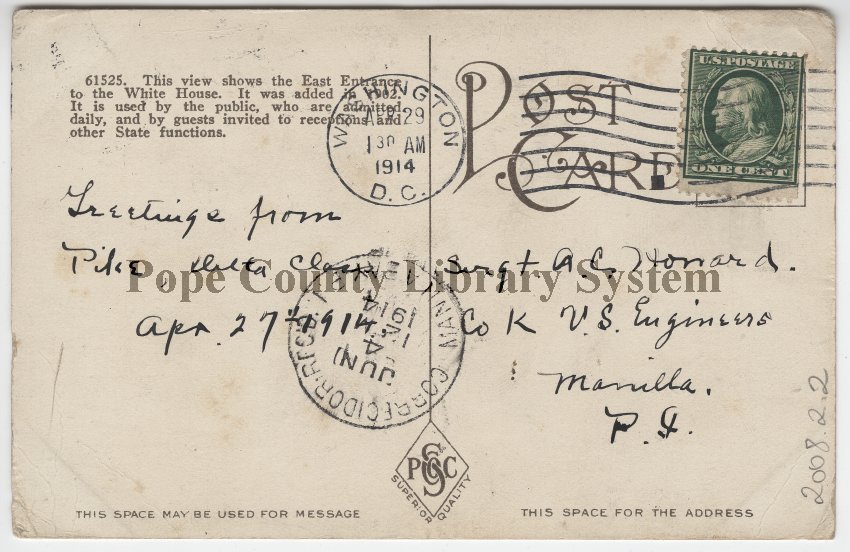 61525. This view shows the East Entrance
to the White House. It was added in 1902.
It is used by the public, who are admitted
daily, and by guests invited to receptions and
other State functions.
WASHINGTON
APR 29
1 30 AM
1914
D.C.
POST
CARD
U.S. POSTAGE
ONE CENT
Greetings from
Pike, Delta Class
Apr. 27th 1914.
Sergt A.C. Howard.
Co K U.S. Engineers
Manilla.
P.I.
CORREGIDOR
JUN
4
1914
Pope County Library System
PSOC
SUPERIOR QUALITY
THIS SPACE MAY BE USED FOR MESSAGE
THIS SPACE FOR THE ADDRESS
2008.2.2